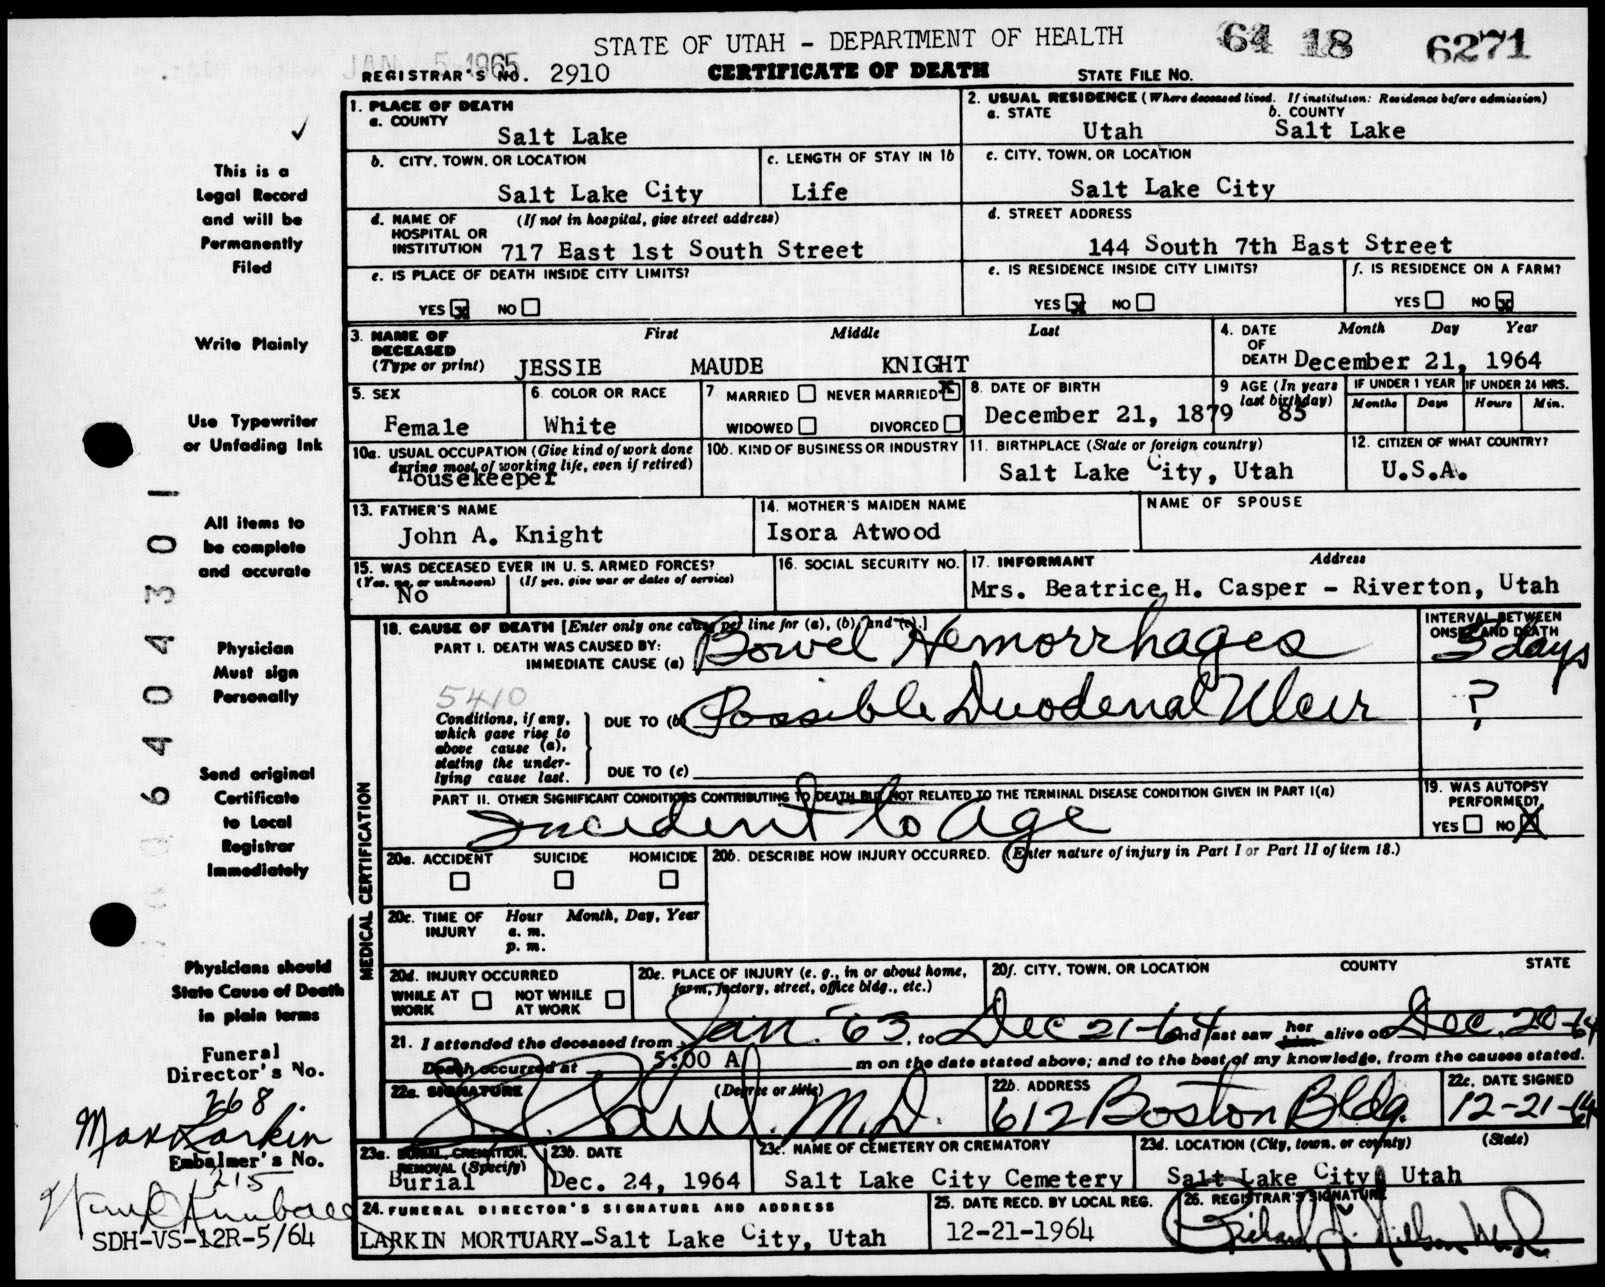 STATE OF UTAH - DEPARTMENT OF HEALTH
64 18 6271
JAN 5 1965
REGISTRAR'S NO. 2910 CERTIFICATE OF DEATH STATE FILE NO.
1. PLACE OF DEATH
a. COUNTY
Salt Lake
2. USUAL RESIDENCE (Where deceased lived. If institution: Residence before admission)
a. STATE b. COUNTY
Utah Salt Lake
b. CITY, TOWN, OR LOCATION
Salt Lake City
c. LENGTH OF STAY IN 1b
Life
c. CITY, TOWN, OR LOCATION
Salt Lake City
d. NAME OF HOSPITAL OR INSTITUTION (If not in hospital, give street address)
717 East 1st South Street
d. STREET ADDRESS
144 South 7th East Street
e. IS PLACE OF DEATH INSIDE CITY LIMITS?
YES x NO
e. IS RESIDENCE INSIDE CITY LIMITS?
YES x NO
f. IS RESIDENCE ON A FARM?
YES NO x
3. NAME OF DECEASED (Type or print)
First Middle Last
JESSIE MAUDE KNIGHT
4. DATE OF DEATH Month Day Year
December 21, 1964
5. SEX
Female
6. COLOR OR RACE
White
7 MARRIED NEVER MARRIED X
WIDOWED DIVORCED
8. DATE OF BIRTH
December 21, 1879
9 AGE (In years last birthday)
85
IF UNDER 1 YEAR IF UNDER 24 HRS.
Months Days Hours Min.
10a. USUAL OCCUPATION (Give kind of work done during most of working life, even if retired)
Housekeeper
10b. KIND OF BUSINESS OR INDUSTRY
11. BIRTHPLACE (State or foreign country)
Salt Lake City, Utah
12. CITIZEN OF WHAT COUNTRY?
U.S.A.
13. FATHER'S NAME
John A. Knight
14. MOTHER'S MAIDEN NAME
Isora Atwood
NAME OF SPOUSE
15. WAS DECEASED EVER IN U. S. ARMED FORCES?
(Yes, no, or unknown) (If yes, give war or dates of service)
No
16. SOCIAL SECURITY NO.
17. INFORMANT Address
Mrs. Beatrice H. Casper - Riverton, Utah
MEDICAL CERTIFICATION
18. CAUSE OF DEATH [Enter only one cause per line for (a), (b), and (c).]
PART I. DEATH WAS CAUSED BY:
IMMEDIATE CAUSE (a) Bowel Hemorrhages
INTERVAL BETWEEN ONSET AND DEATH
3 days
5410
Conditions, if any, which gave rise to above cause (a), stating the underlying cause last.
DUE TO (b) Possible Duodenal Ulcer
?
DUE TO (c)
PART II. OTHER SIGNIFICANT CONDITIONS CONTRIBUTING TO DEATH BUT NOT RELATED TO THE TERMINAL DISEASE CONDITION GIVEN IN PART I(a)
Incident to Age
19. WAS AUTOPSY PERFORMED?
YES NO X
20a. ACCIDENT SUICIDE HOMICIDE
20b. DESCRIBE HOW INJURY OCCURRED. (Enter nature of injury in Part I or Part II of item 18.)
20c. TIME OF INJURY Hour Month, Day, Year
a. m.
p. m.
20d. INJURY OCCURRED
WHILE AT WORK NOT WHILE AT WORK
20e. PLACE OF INJURY (e. g., in or about home, farm, factory, street, office bldg., etc.)
20f. CITY, TOWN, OR LOCATION COUNTY STATE
21. I attended the deceased from Jan. '63, to Dec 21-64 and last saw her him alive on Dec. 20-64
Death occurred at 5:00 A m on the date stated above; and to the best of my knowledge, from the causes stated.
22a. SIGNATURE (Degree or title)
M.D.
22b. ADDRESS
612 Boston Bldg.
22c. DATE SIGNED
12-21-64
23a. BURIAL, CREMATION, REMOVAL (Specify)
Burial
23b. DATE
Dec. 24, 1964
23c. NAME OF CEMETERY OR CREMATORY
Salt Lake City Cemetery
23d. LOCATION (City, town, or county) (State)
Salt Lake City, Utah
24. FUNERAL DIRECTOR'S SIGNATURE AND ADDRESS
LARKIN MORTUARY-Salt Lake City, Utah
25. DATE RECD. BY LOCAL REG.
12-21-1964
26. REGISTRAR'S SIGNATURE
This is a
Legal Record
and will be
Permanently
Filed
Write Plainly
Use Typewriter
or Unfading Ink
All items to
be complete
and accurate
Physician
Must sign
Personally
Send original
Certificate
to Local
Registrar
Immediately
Physicians should
State Cause of Death
in plain terms
Funeral
Director's No.
268
Max Larkin
Embalmer's No.
215
SDH-VS-12R-5/64
6404301